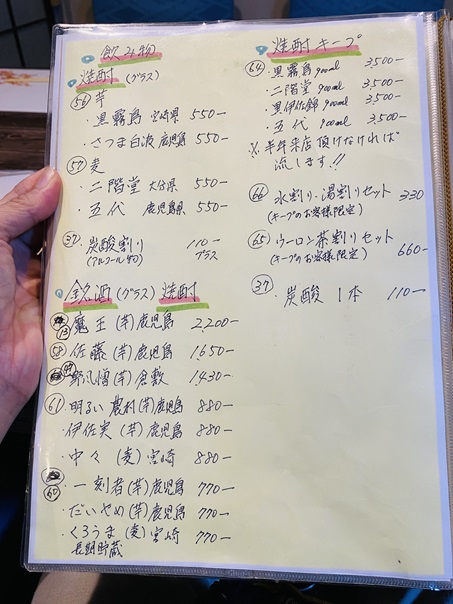 飲み物
焼酎(グラス)
56 芋
・黒霧島 宮崎県 550-
・さつま白波 鹿児島 550-
57 麦
・二階堂 大分県 550-
・五代 鹿児島県 550-
37 ・炭酸割り 110-
(アルコール別) グラス
銘酒(グラス)焼酎
13 魔王(芋)鹿児島 2,200-
58 ・佐藤(芋)鹿児島 1650-
(芋)倉敷 1430-
61 ・明るい農村(芋)鹿児島 880-
・伊佐実(芋)鹿児島 880-
・中々(麦)宮崎 880-
60 ・一刻者(芋)鹿児島 770-
・だいやめ(芋)鹿児島 770-
・くろうま(麦)宮崎 770-
長期貯蔵
焼酎キープ
64 ・黒霧島 900ml 3,500-
・二階堂 900ml 3,500-
・黒伊佐錦 900ml 3,500-
・五代 900ml 3,500-
※半年来店頂けなければ
流します!!
66 水割り・湯割りセット 330
(キープのお客様限定)
65 ウーロン茶割りセット
(キープのお客様限定) 660-
37 ・炭酸 1本 110-